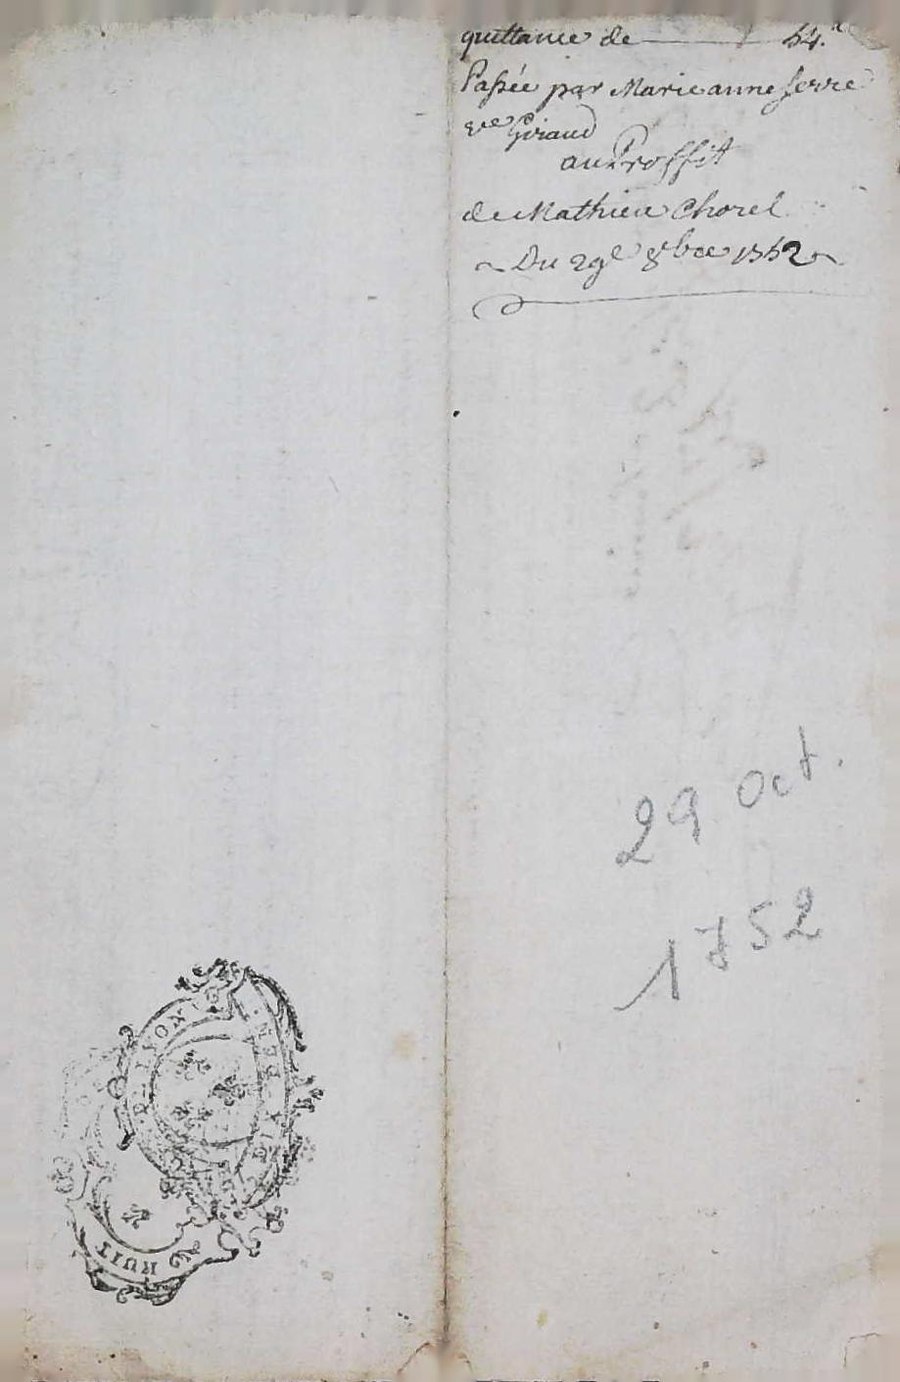 quittance de 54.#
Passée par Marieanne serre
vve Giraud
au Proffit
de Mathieu Chorel
Du 29e 8bre 1752
29 oct.
1752
LYON
HUIT